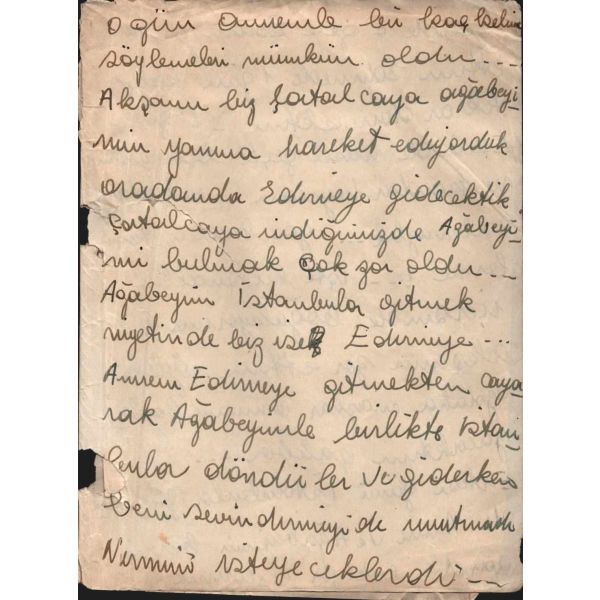 o gün annemle bir kaç kelime
söylemeleri mümkün oldu...
Akşam biz Çatalcaya ağabeyi-
min yanına hareket ediyorduk
oradanda Edirneye gidecektik
Çatalcaya indiğimizde Ağabeyi-
mi bulmak çok zor oldu...
Ağabeyim İstanbula gitmek
niyetinde biz ise Edirneye...
Annem Edirneye gitmekten caya
rak Ağabeyimle birlikte istan-
bula döndüler ve giderken
beni sevindirmeyide unutmadı
Nermini isteyeceklerdi...